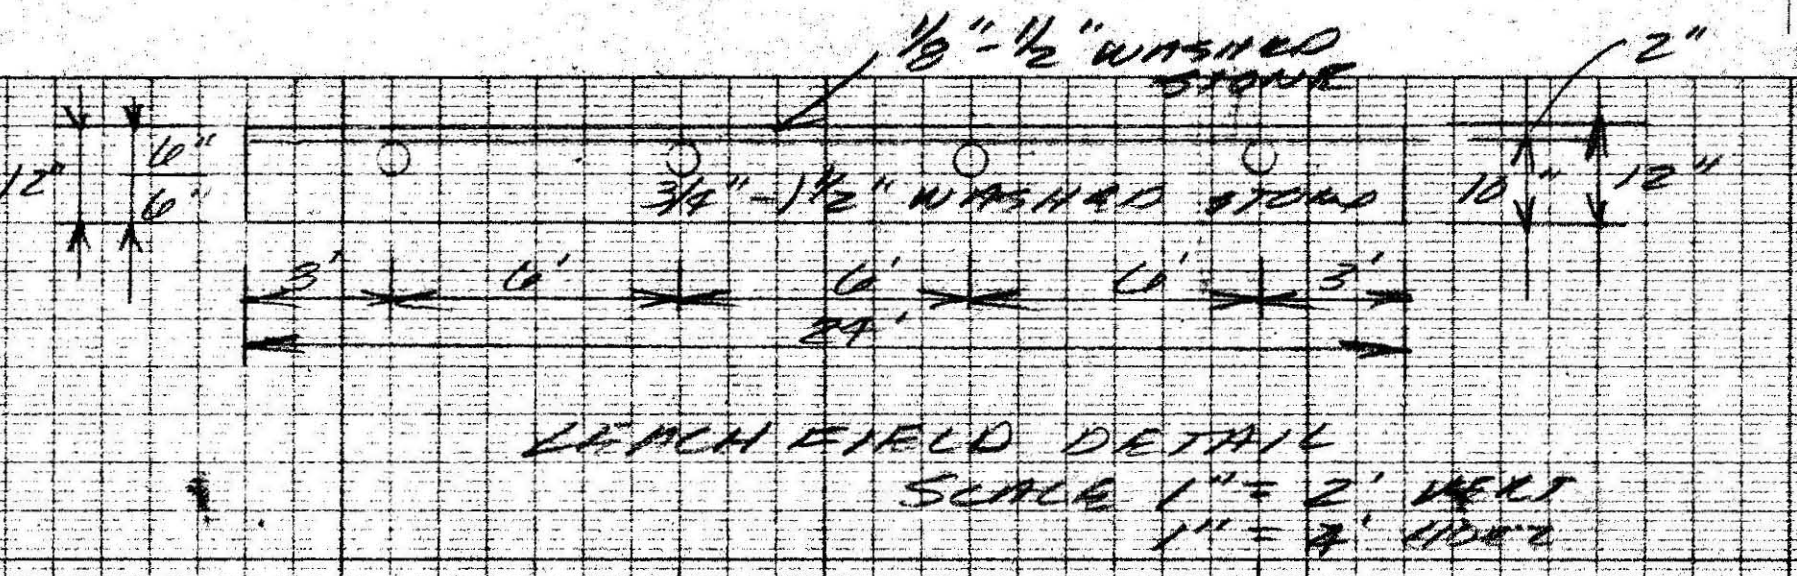 1/8"-1/2" WASHED
STONE
2"
12"
6"
6"
3/4"-1 1/2" WASHED STONE
10"
12"
3' 6' 6' 6' 3'
24'
LEACH FIELD DETAIL
SCALE 1" = 2' VERT
1" = 4' HORZ